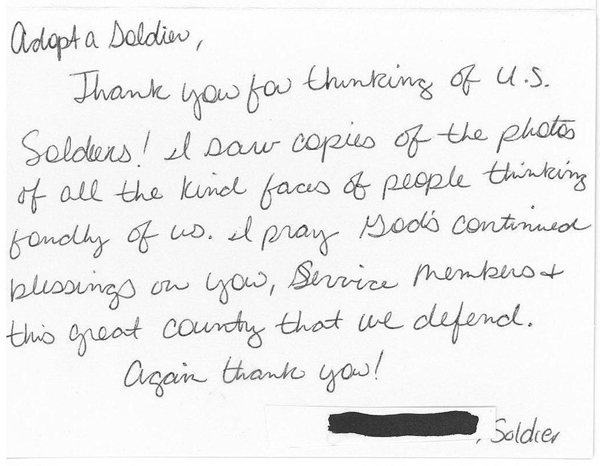 Adopt a Soldier,
Thank you for thinking of U.S.
Soldiers! I saw copies of the photos
of all the kind faces of people thinking
fondly of us. I pray God's continued
blessings on you, Service Members +
this great county that we defend.
Again thank you!
, Soldier